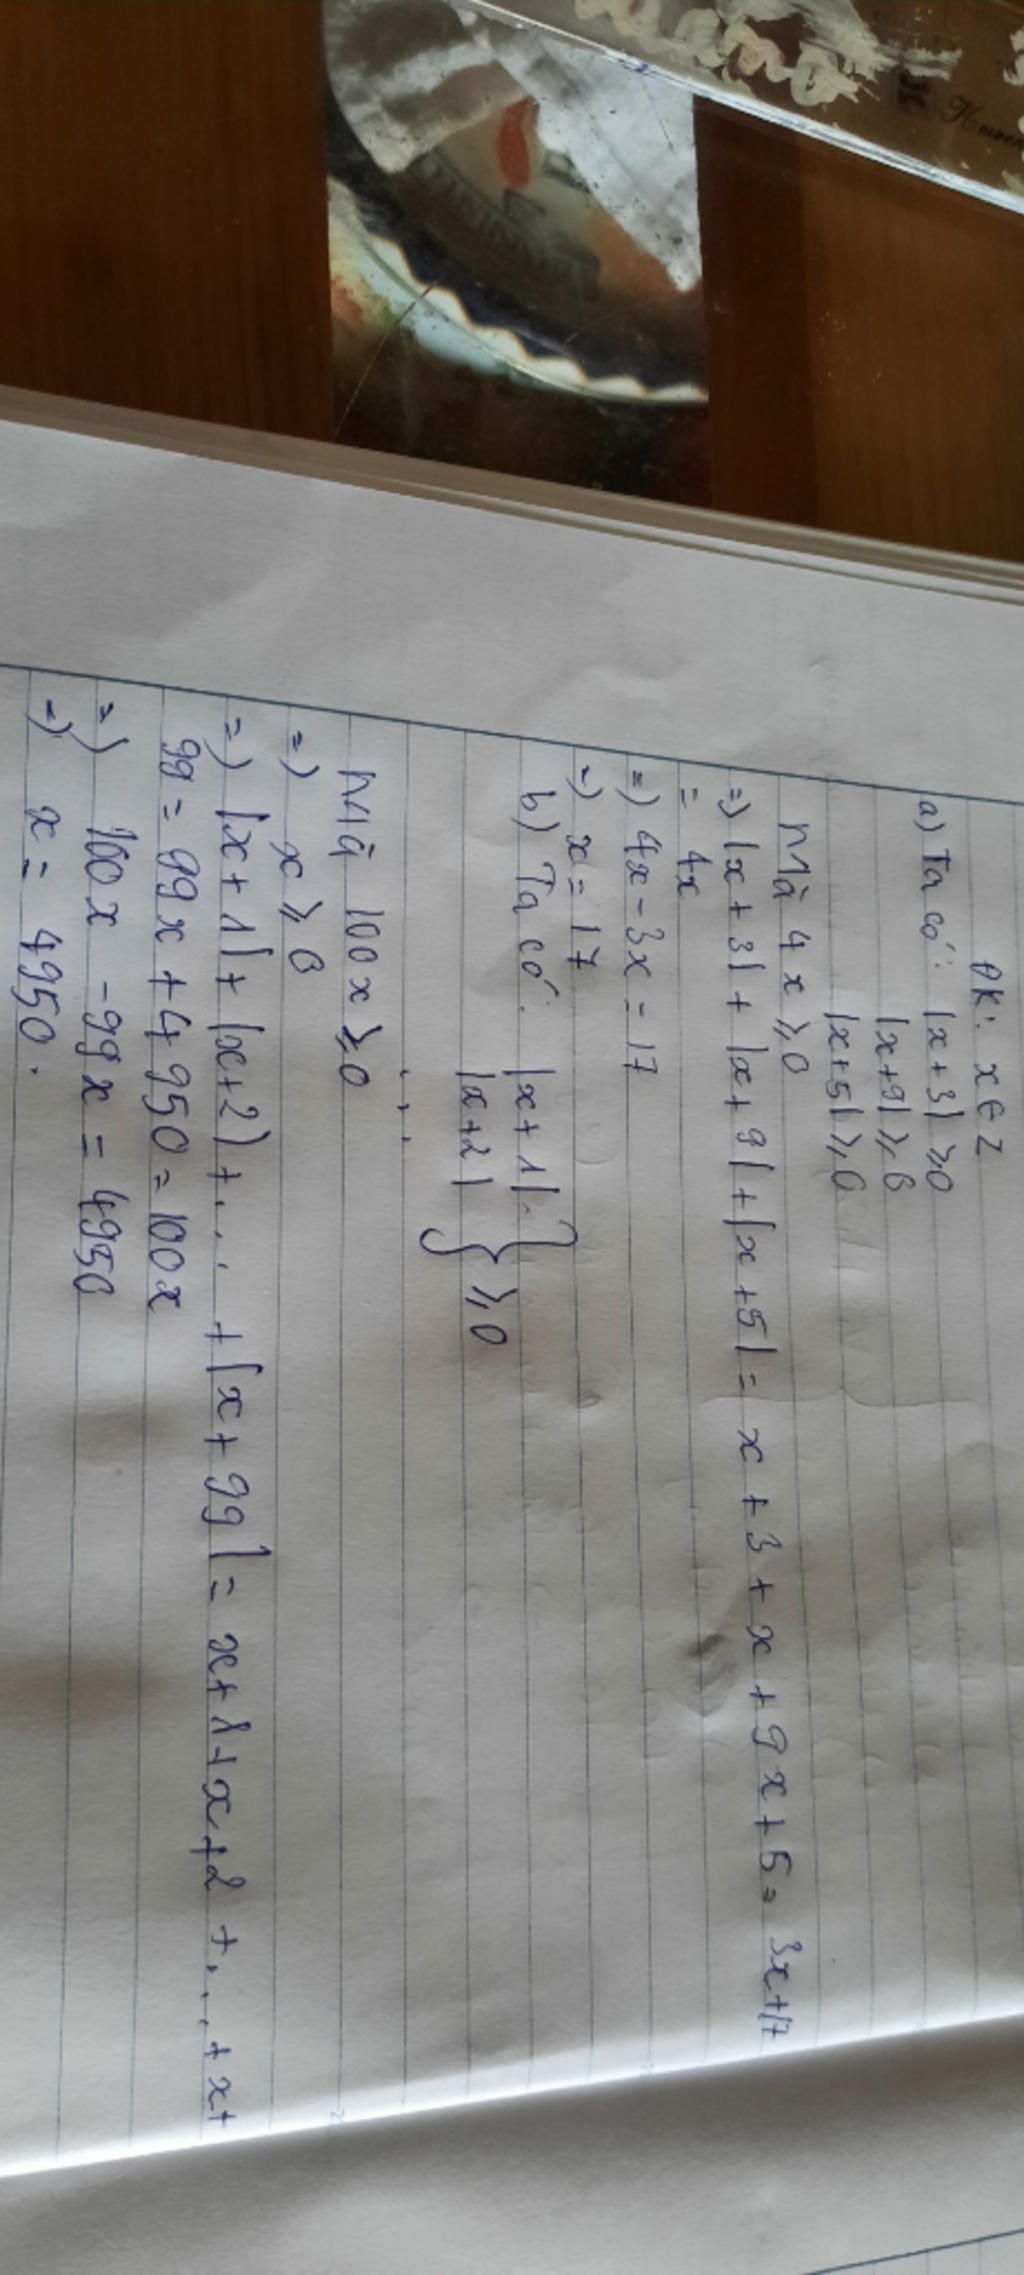 ĐK: x ∈ Z
a) Ta có: |x+3| ≥ 0
|x+9| ≥ 0
|x+5| ≥ 0
mà 4x ≥ 0
=) |x+3| + |x+9| + |x+5| = x+3+x+9x+5 = 3x+17
= 4x
=) 4x-3x = 17
=) x = 17
b) Ta có: |x+1|
|x+2| } ≥ 0
...
mà 100x ≥ 0
=) x ≥ 0
=) |x+1| + |x+2) + ... + |x+99| = x+1+x+2+...+x+
99 = 99x + 4950 = 100x
=) 100x - 99x = 4950
=) x = 4950.